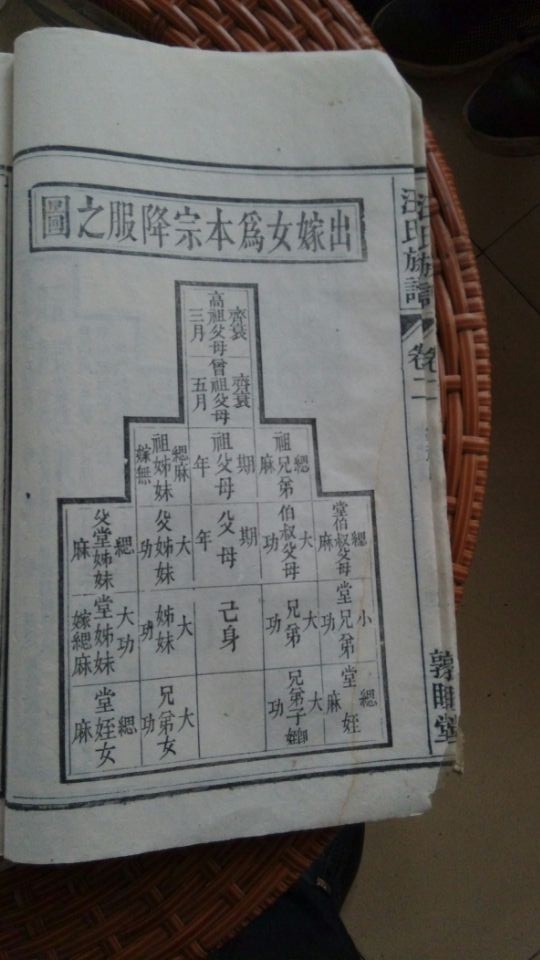 出嫁女爲本宗降服之圖
齊衰 高祖父母 三月
齊衰 曾祖父母 五月
緦麻 祖兄弟
期年 祖父母
緦麻 祖姊妹 嫁無
緦麻 堂伯叔父母
大功 伯叔父母
期年 父母
大功 父姊妹
緦麻 父堂姊妹
小功 堂兄弟
大功 兄弟
己身
大功 姊妹
大功 堂姊妹 嫁緦麻
緦麻 堂姪
大功 兄弟子 卽姪
大功 兄弟女
緦麻 堂姪女
汪氏族譜
卷二
敦睦堂